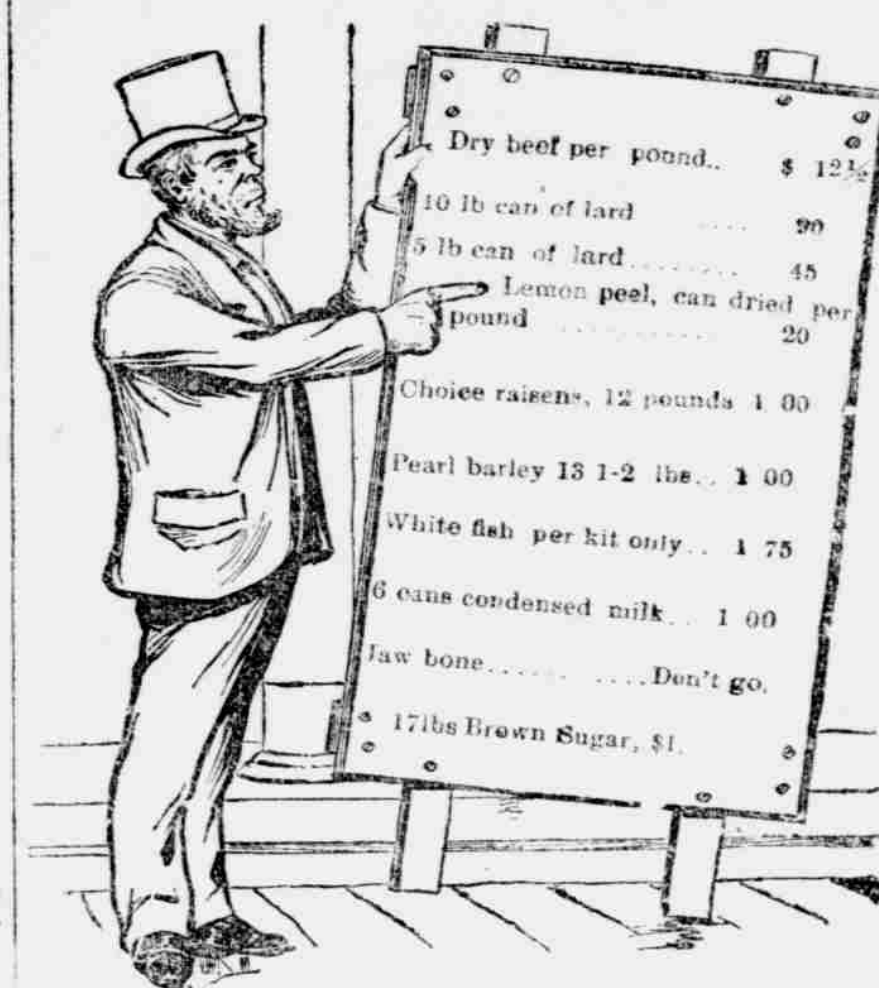 Dry beef per pound.. $ 12½
10 lb can of lard .... 90
5 lb can of lard......... 45
Lemon peel, can dried per
pound ............... 20
Choice raisens, 12 pounds 1 00
Pearl barley 13 1-2 lbs.. 1 00
White fish per kit only.. 1 75
6 cans condensed milk.. 1 00
Jaw bone...... ....Don't go.
17lbs Brown Sugar, $1.